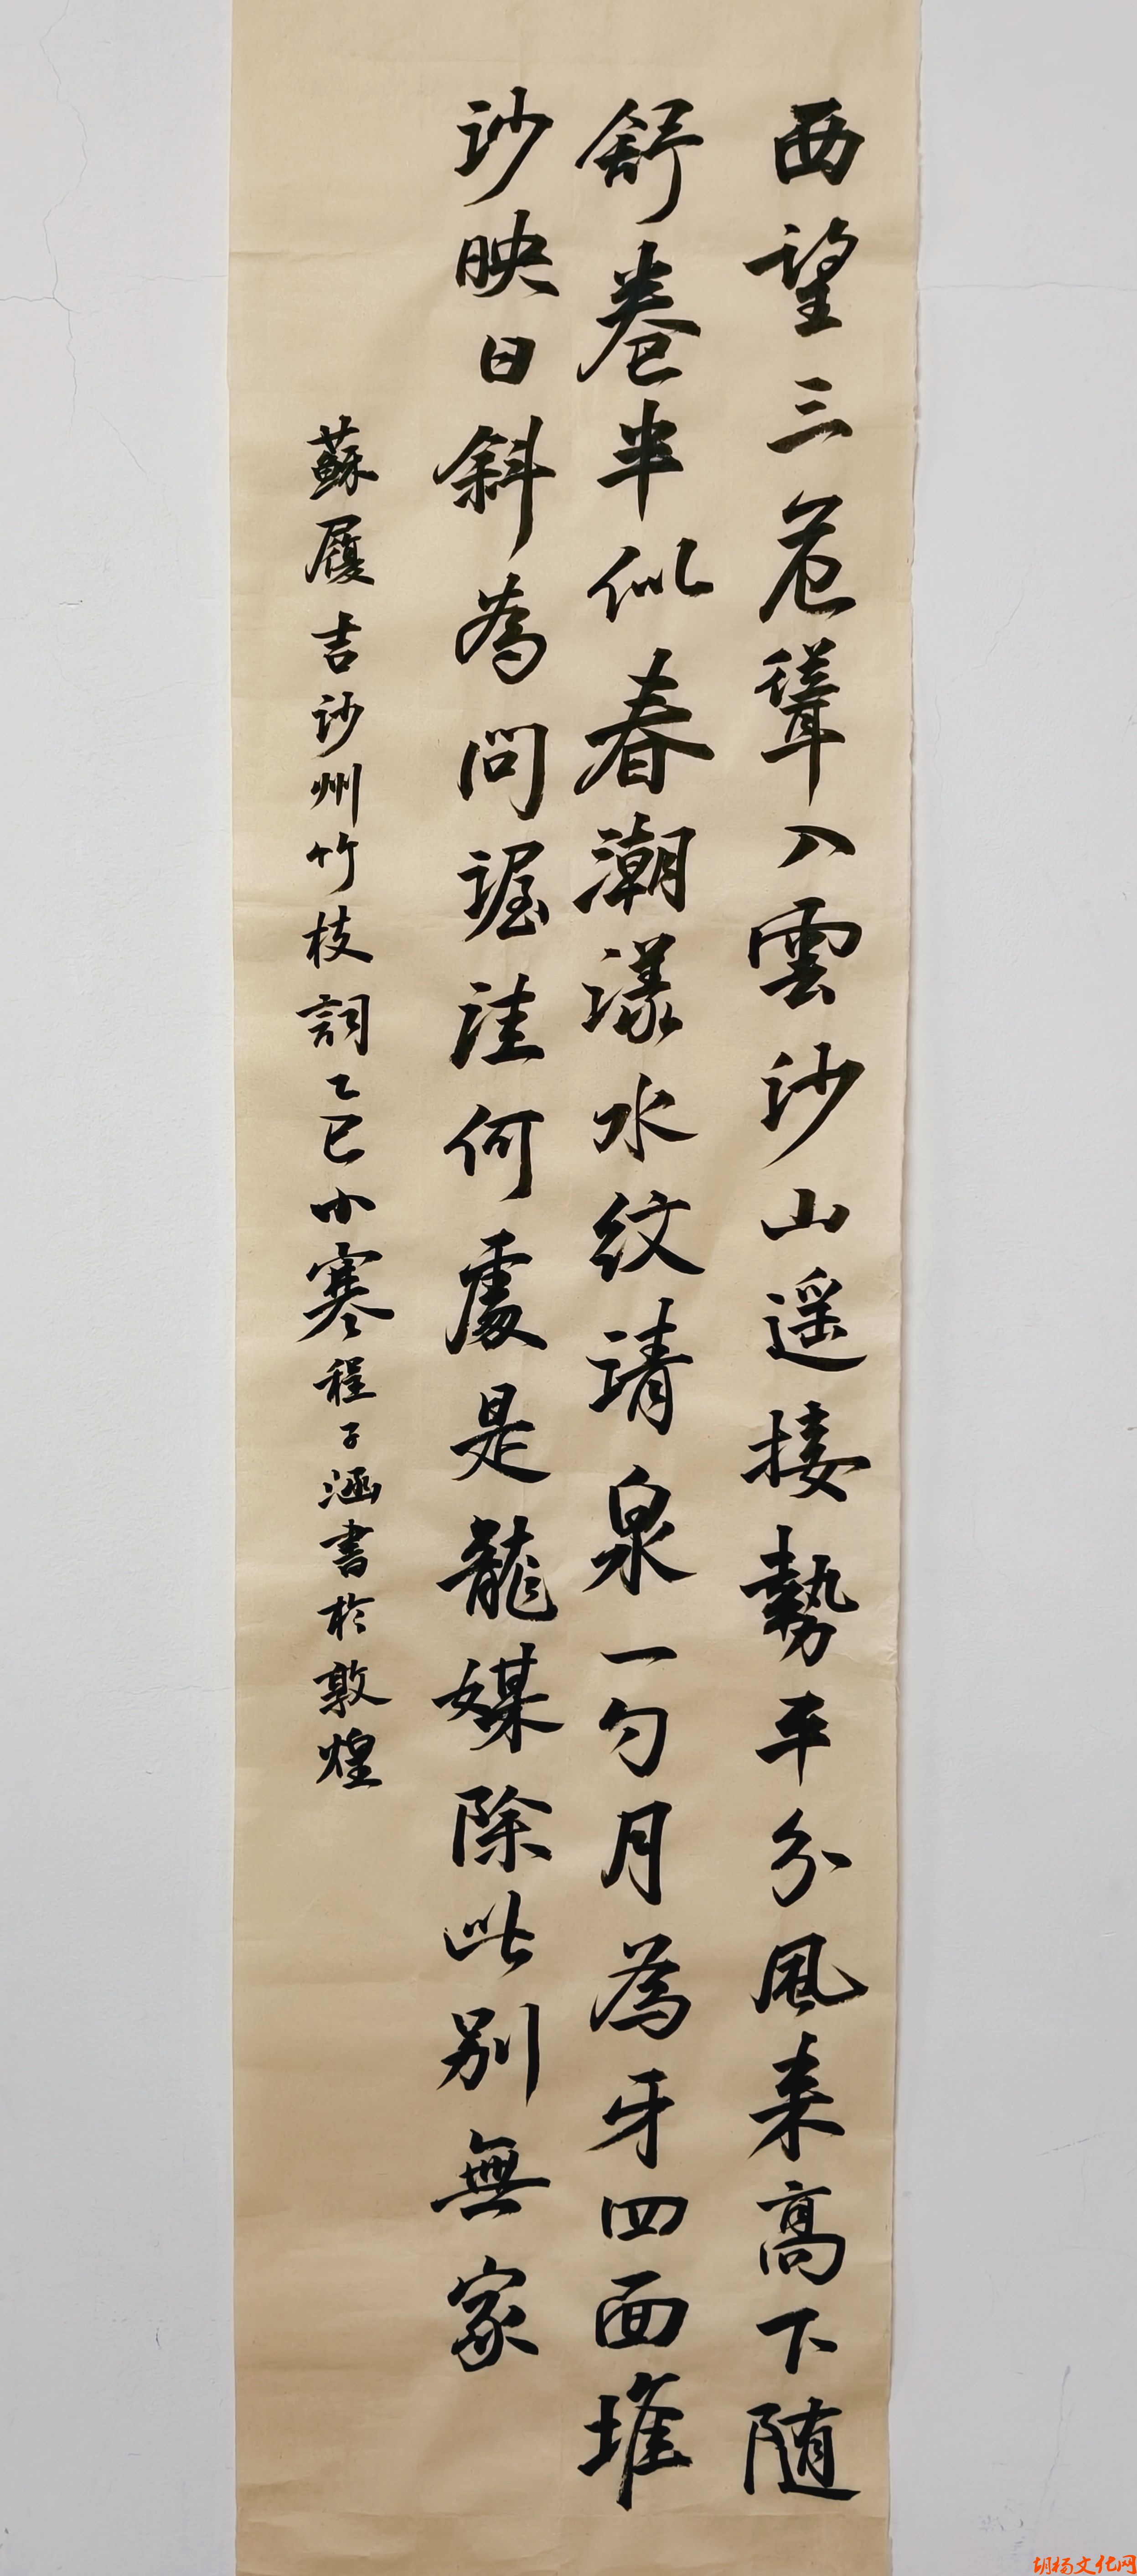 西望三危聳入雲沙山遥接勢平分風来高下随
舒卷半似春潮漾水紋清泉一勺月為牙四面堆
沙映日斜為問渥洼何處是龍媒除此別無家
蘇履吉沙州竹枝詞乙巳小寒程子涵書於敦煌
胡杨文化网